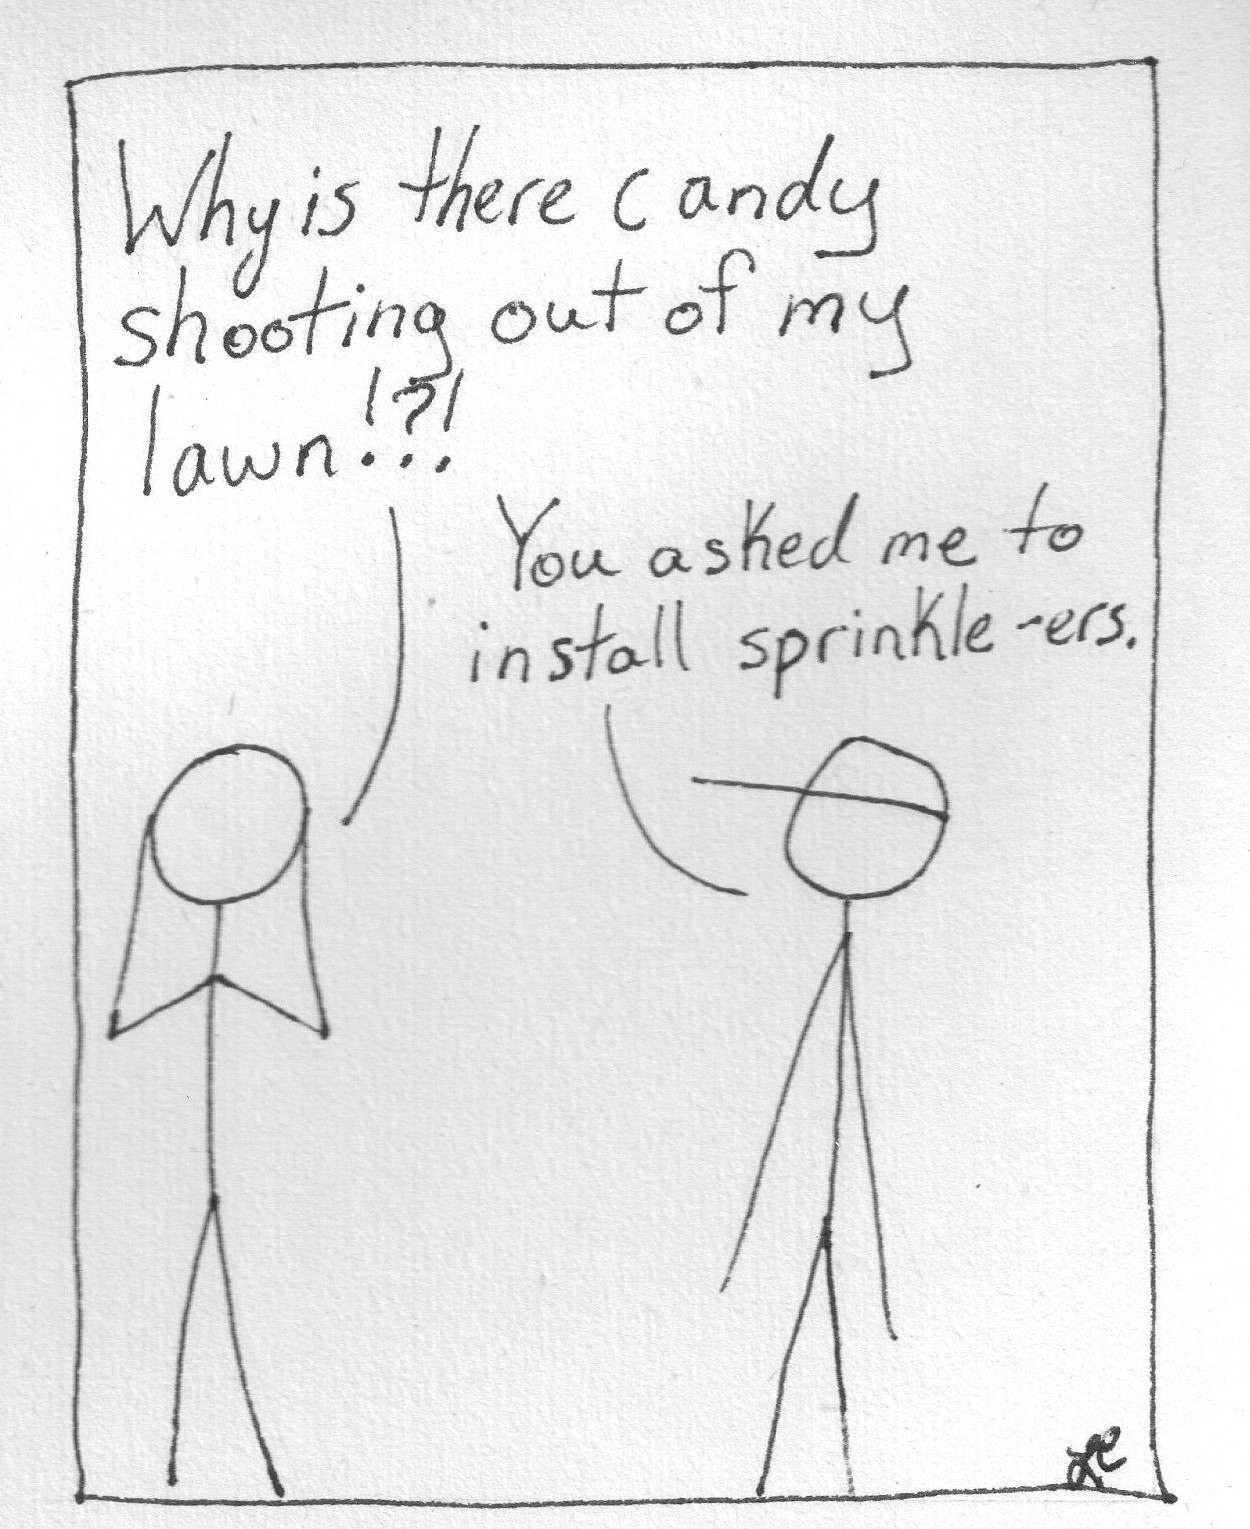 Why is there candy
shooting out of my
lawn!?!
You asked me to
install sprinkle-ers.